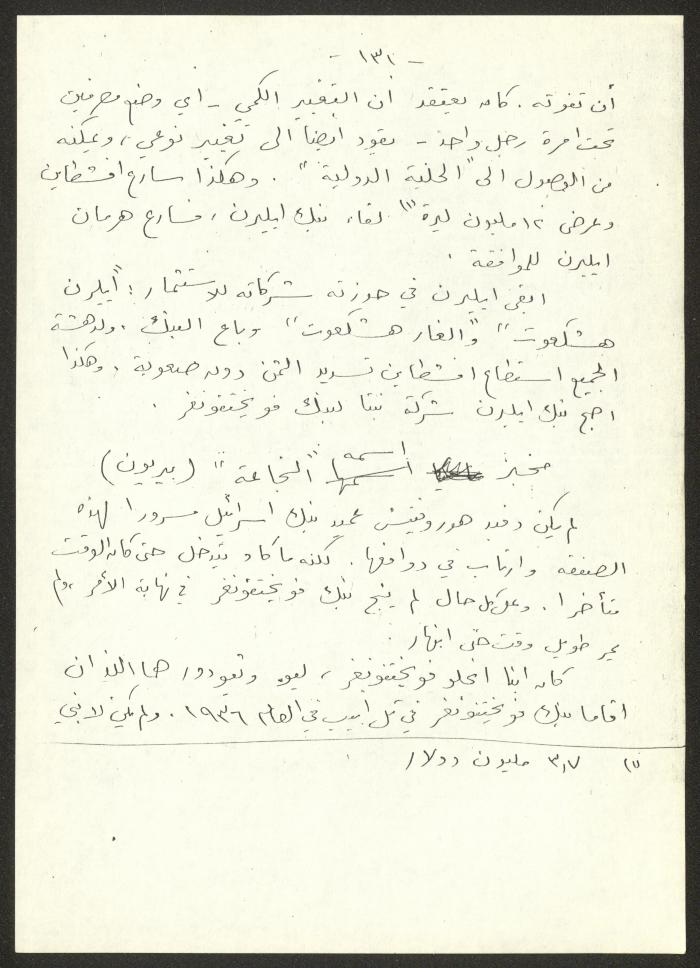 - ١٣١ -
أن تفوته . كان يعتقد ان التغيير الكمي - اي وضع مصرفين
تحت امرة رجل واحد - يقود ايضا الى تغيير نوعي ، ويمكنه
من الوصول الى "الحلبة الدولية" . وهكذا سارع افشطاين
وعرض ١٢ مليون ليرة (١) لقاء بنك ايليرن ، فسارع هرمان
ايليرن للموافقة .
ابقى ايليرن في حوزته شركاته للاستثمار : "ايلرن
هشكعوت" و"الغار هشكعوت" وباع البنك . ولدهشة
الجميع استطاع افشطاين تسديد الثمن دون صعوبة . وهكذا
اصبح بنك ايليرن شركة بنتا لبنك فويختفنغر .
مخبز اسمه "النجاعة" (بيريون)
لم يكن دفيد هوروفيتس عميد بنك اسرائيل مسرورا لهذه
الصفقة وارتاب في دوافعها . لكنه ما كاد يتدخل حتى كان الوقت
متأخرا . وعلى كل حال لم ينج بنك فويختفونغر في نهاية الأمر ، ولم
يمر طويل وقت حتى انهار .
كان ابنا انجلو فويختفونغر ، ليو وتيودور هما اللذان
اقاما بنك فويختفونغر في تل ابيب في العام ١٩٣٦ . ولم يكن لابني
(١) ٣,٧ مليون دولار